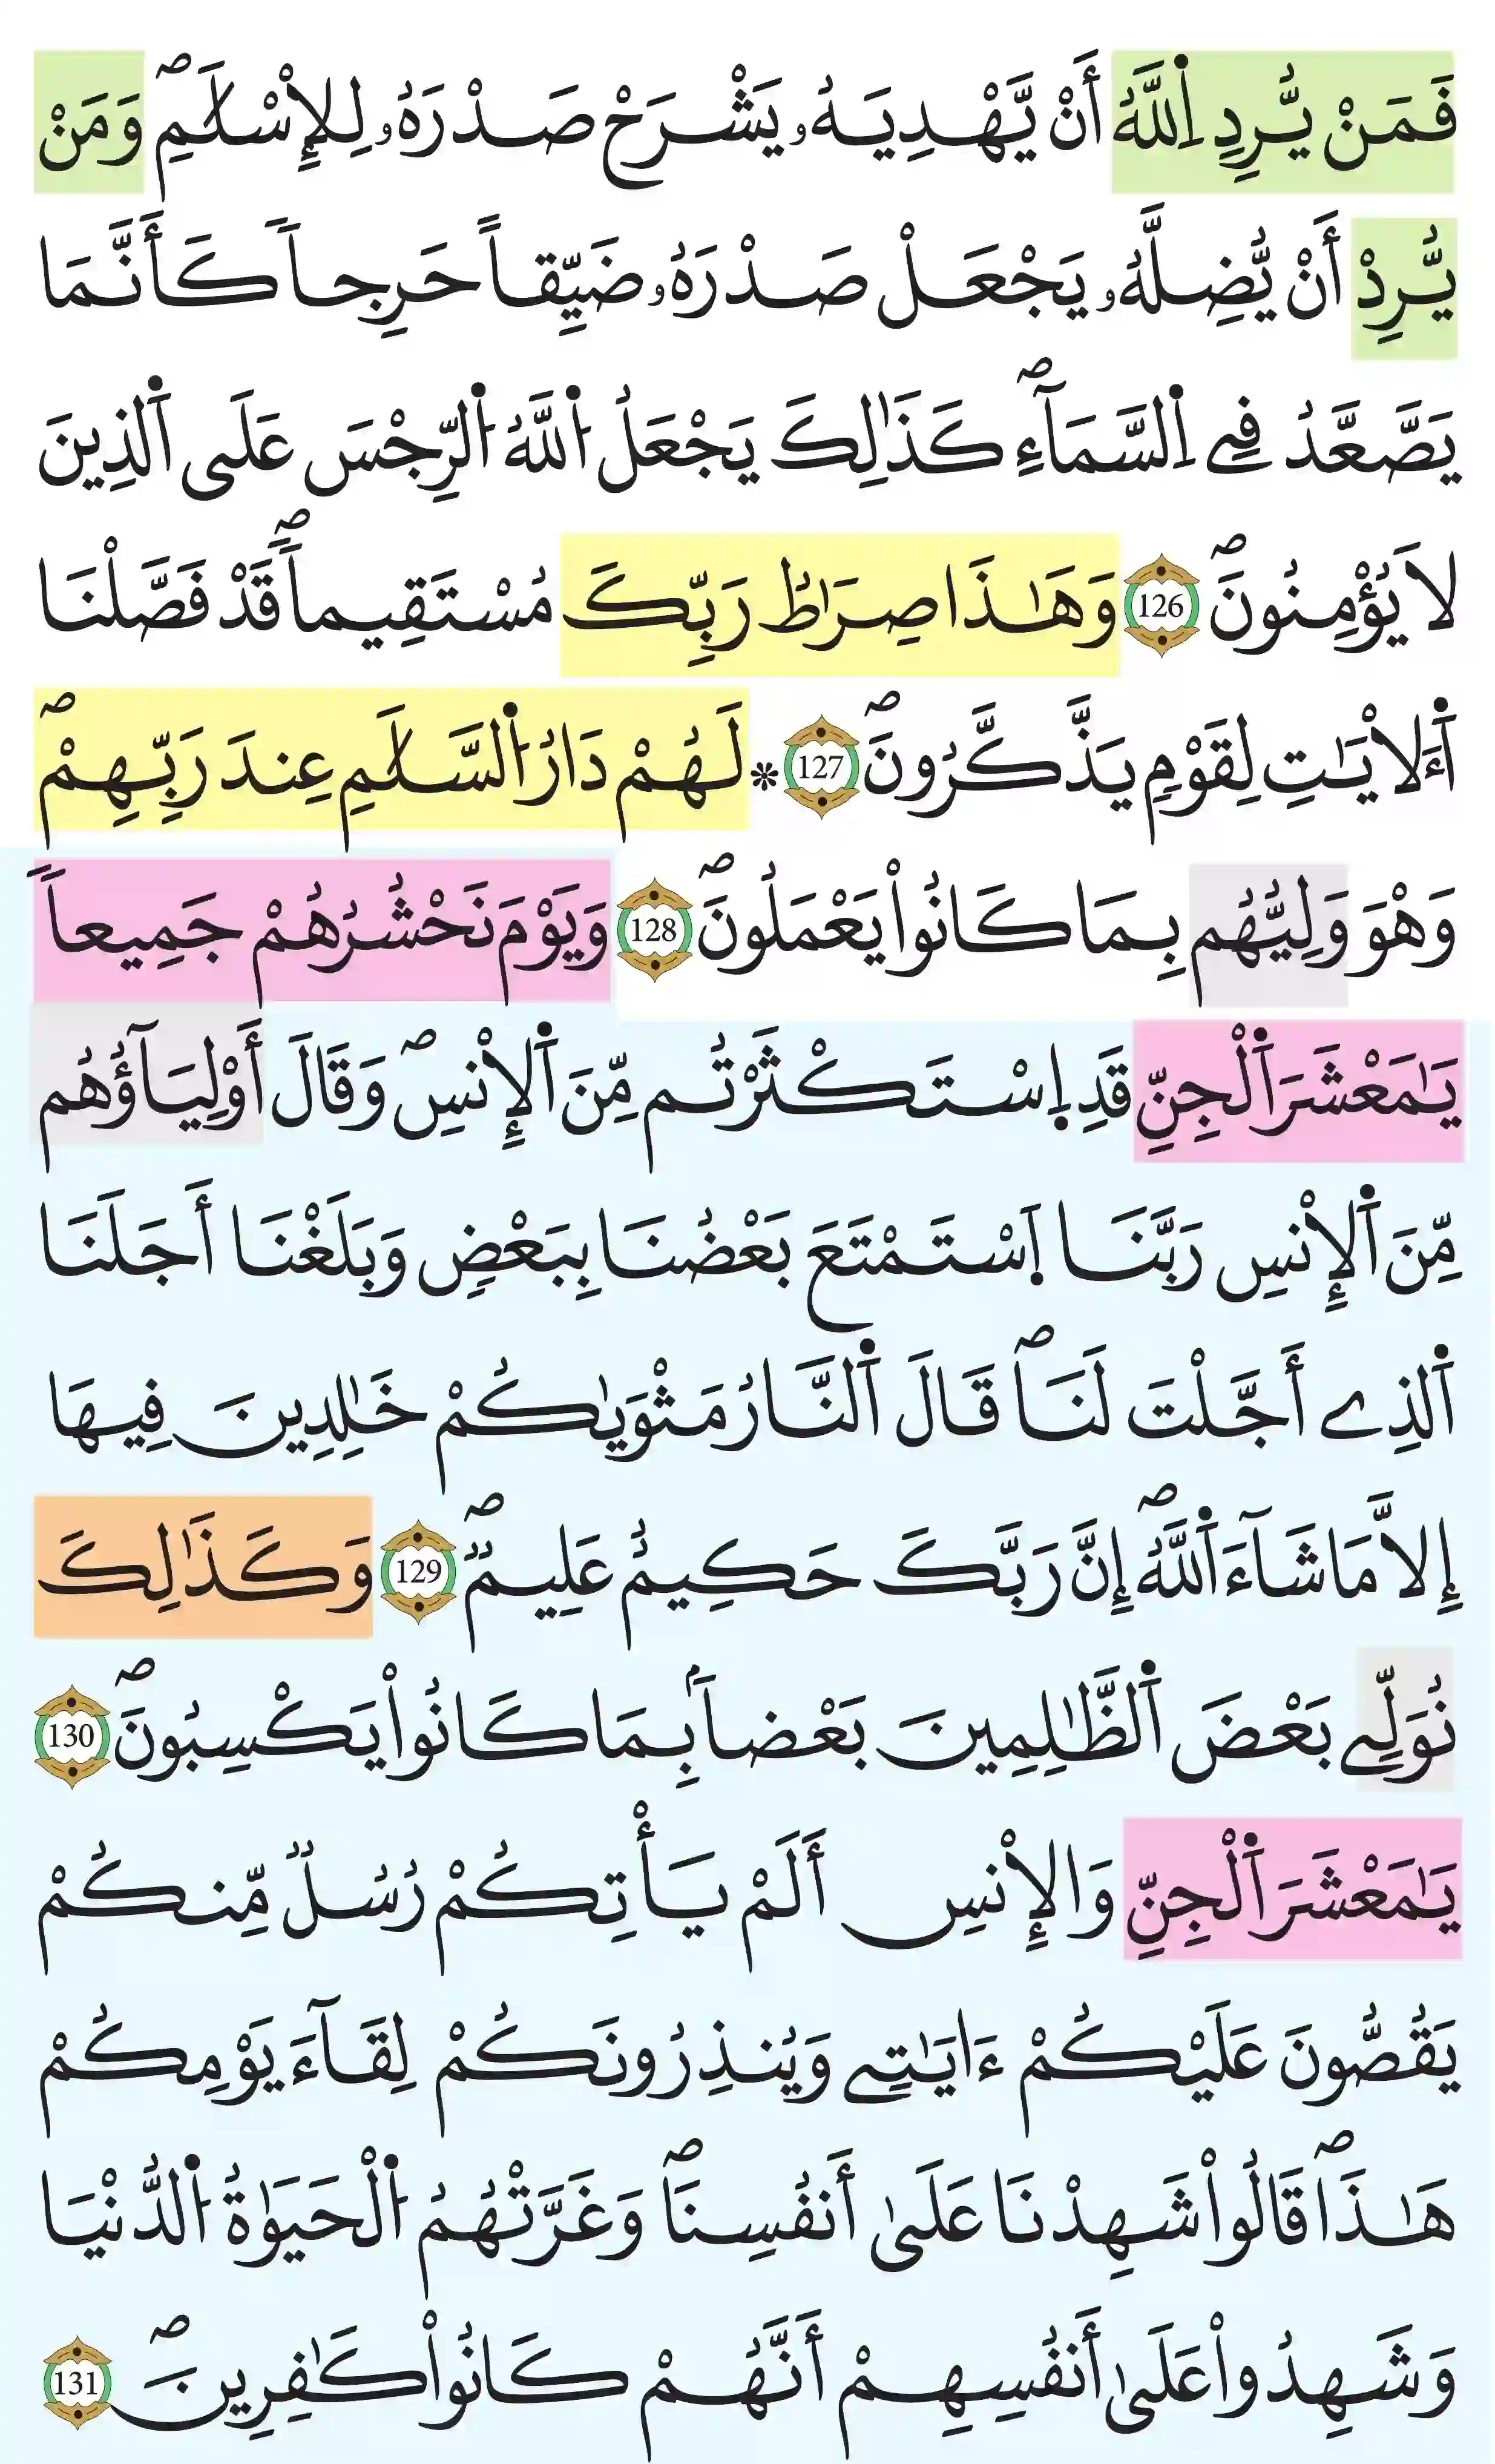 فَمَنْ يُّرِدِ اِ۬للَّهُ أَنْ يَّهْدِيَهُۥ يَشْرَحْ صَدْرَهُۥ لِلِاسْلَٰمِۖ وَمَنْ
يُّرِدْ أَنْ يُّضِلَّهُۥ يَجْعَلْ صَدْرَهُۥ ضَيِّقاً حَرِجاً كَأَنَّمَا
يَصَّعَّدُ فِے اِ۬لسَّمَآءِۖ كَذَٰلِكَ يَجْعَلُ اُ۬للَّهُ اُ۬لرِّجْسَ عَلَى اَ۬لذِينَ
لَا يُؤْمِنُونَۖ 126 وَهَٰذَا صِرَٰطُ رَبِّكَ مُسْتَقِيماًۖ قَدْ فَصَّلْنَا
اَ۬لَأيَٰتِ لِقَوْمٖ يَذَّكَّرُونَۖ 127 ۞ لَهُمْ دَارُ اُ۬لسَّلَٰمِ عِندَ رَبِّهِمْۖ
وَهْوَ وَلِيُّهُم بِمَا كَانُواْ يَعْمَلُونَۖ 128 وَيَوْمَ نَحْشُرُهُمْ جَمِيعاً
يَٰمَعْشَرَ اَ۬لْجِنِّ قَدِ اِ۪سْتَكْثَرْتُم مِّنَ اَ۬لْإِنسِۖ وَقَالَ أَوْلِيَآؤُهُم
مِّنَ اَ۬لْإِنسِ رَبَّنَا اَ۪سْتَمْتَعَ بَعْضُنَا بِبَعْضٖ وَبَلَغْنَا أَجَلَنَا
اَ۬لذِے أَجَّلْتَ لَنَاۖ قَالَ اَ۬لنَّارُ مَثْوَيٰكُمْ خَٰلِدِينَ فِيهَا
إِلَّا مَا شَآءَ اَ۬للَّهُۖ إِنَّ رَبَّكَ حَكِيمٌ عَلِيمٞۖ 129 وَكَذَٰلِكَ
نُوَلِّے بَعْضَ اَ۬لظَّٰلِمِينَ بَعْضاَۢ بِمَا كَانُواْ يَكْسِبُونَۖ 130
يَٰمَعْشَرَ اَ۬لْجِنِّ وَالْإِنسِ أَلَمْ يَأْتِكُمْ رُسُلٞ مِّنكُمْ
يَقُصُّونَ عَلَيْكُمْ ءَايَٰتِے وَيُنذِرُونَكُمْ لِقَآءَ يَوْمِكُمْ
هَٰذَاۖ قَالُواْ شَهِدْنَا عَلَىٰ أَنفُسِنَاۖ وَغَرَّتْهُمُ اُ۬لْحَيَوٰةُ اُ۬لدُّنْيَا
وَشَهِدُواْ عَلَىٰ أَنفُسِهِمْ أَنَّهُمْ كَانُواْ كَٰفِرِينَۖ 131